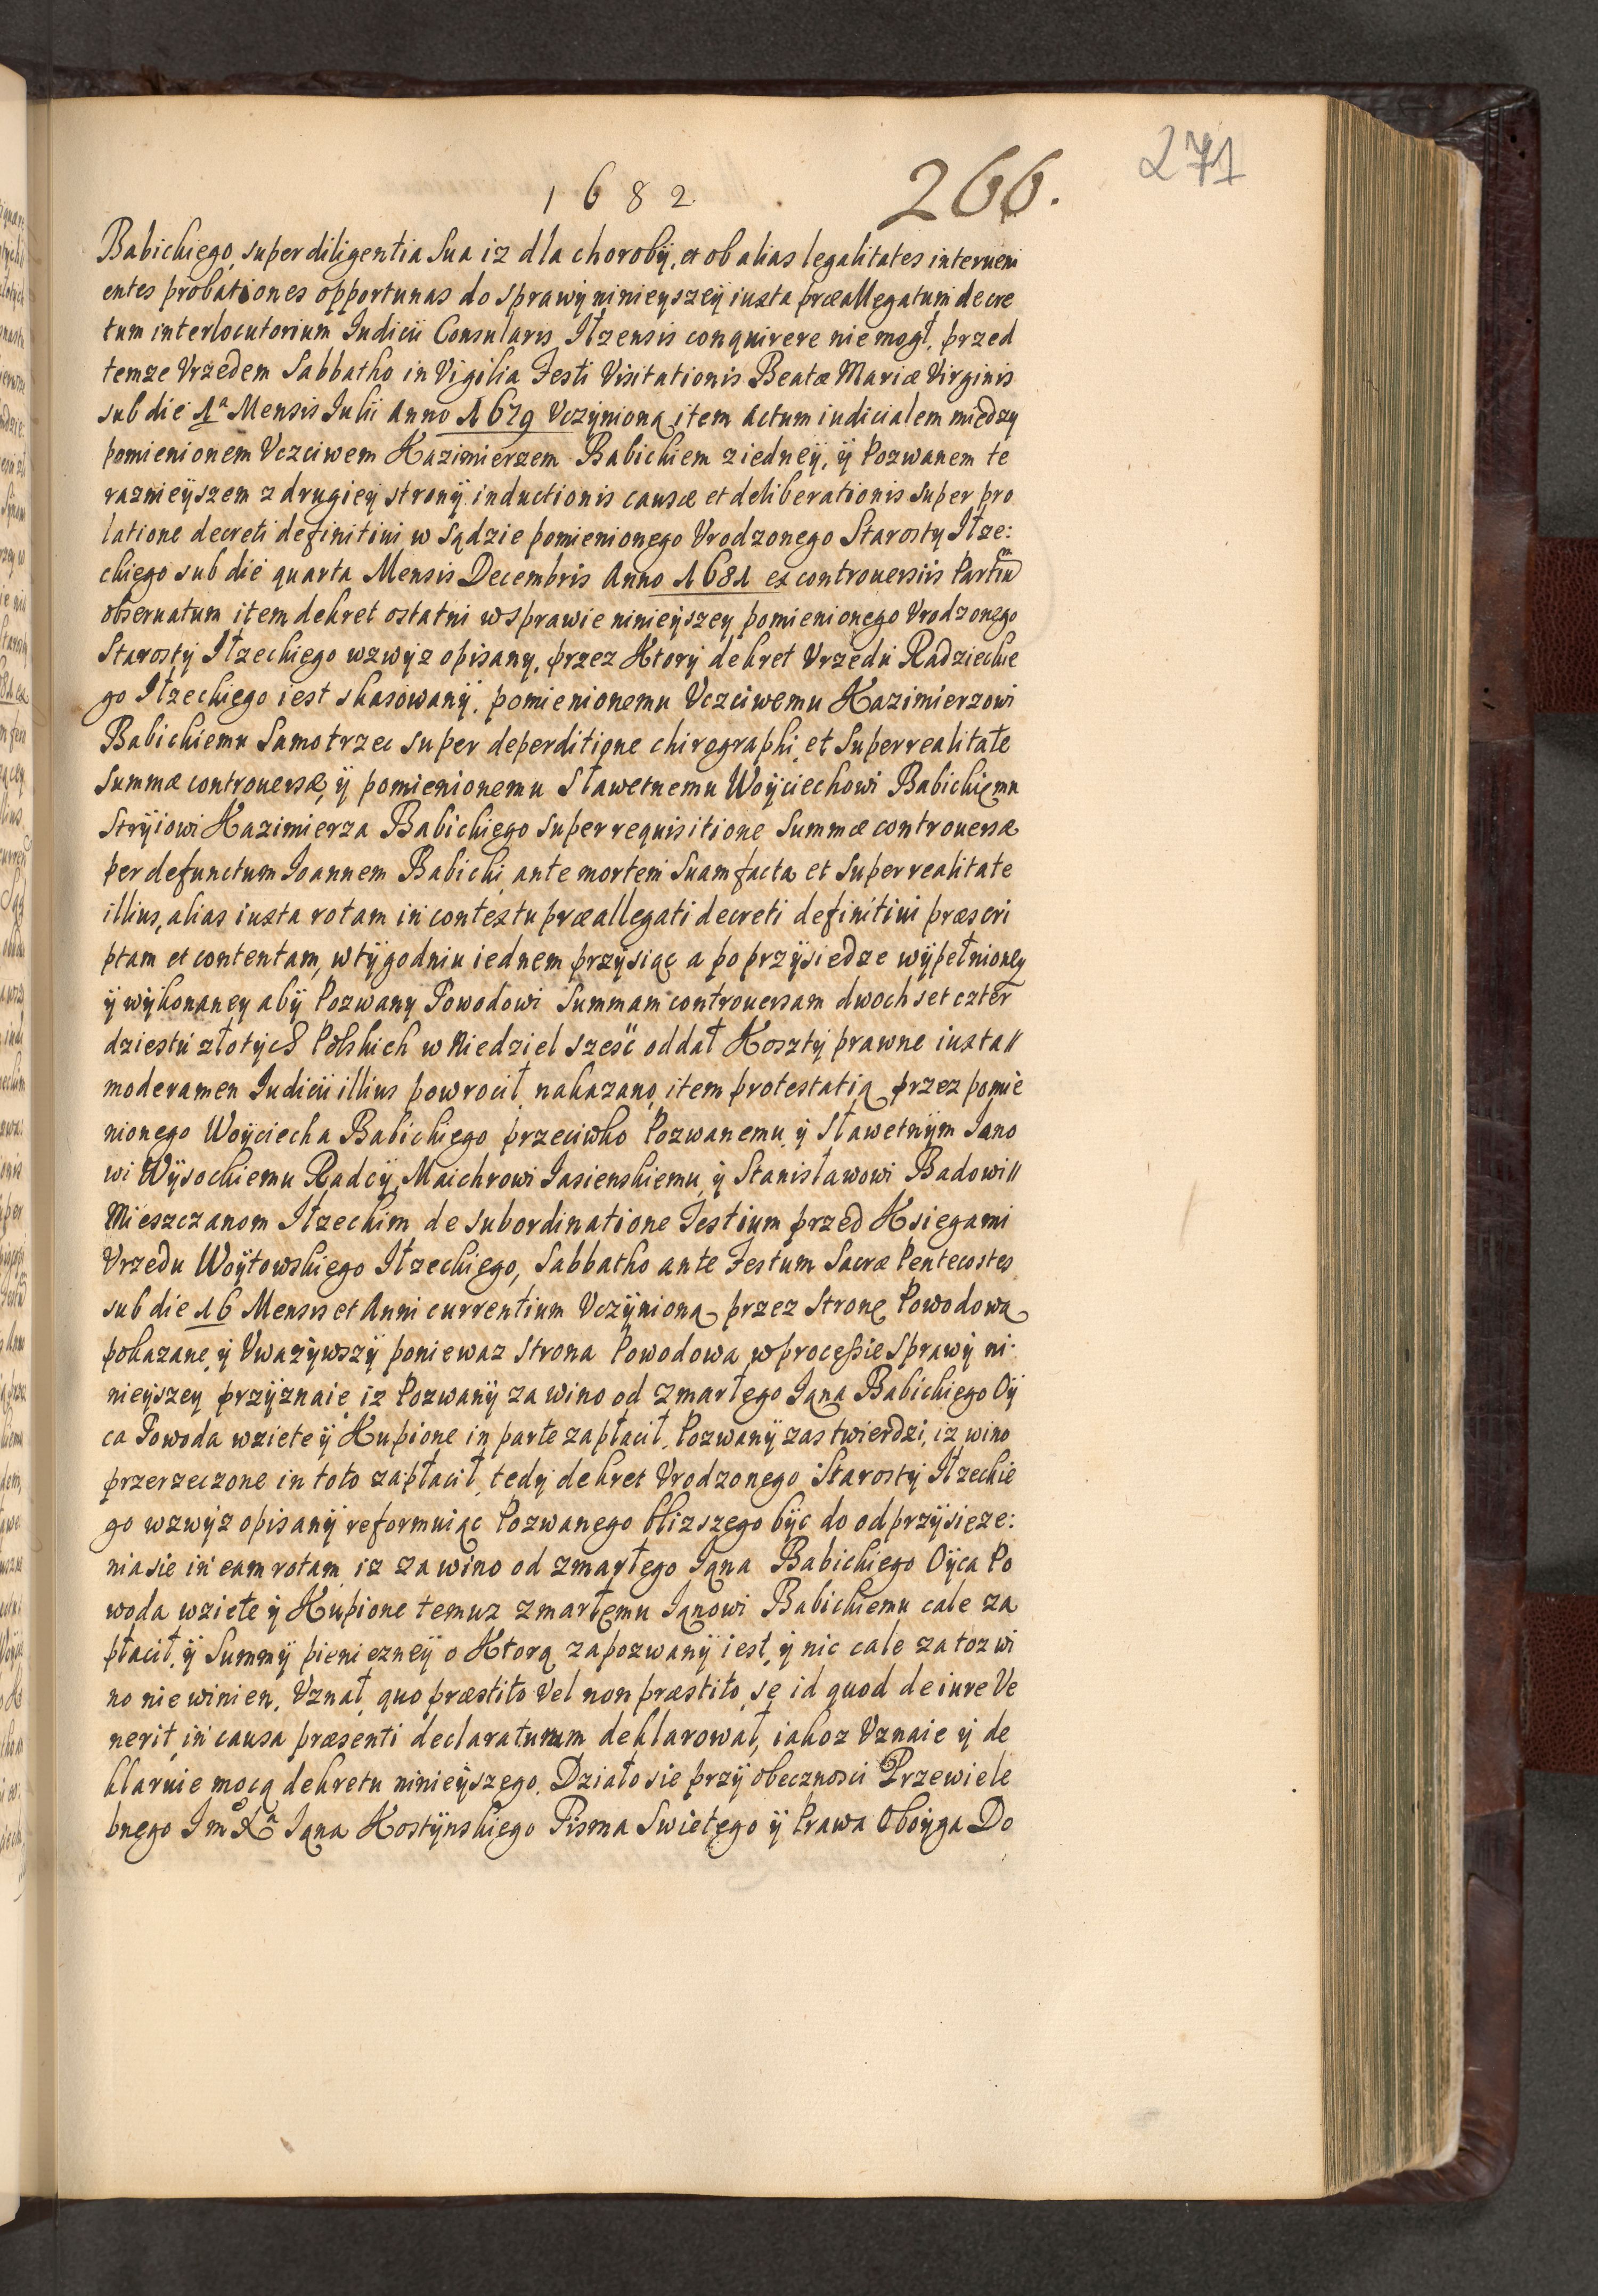 271
1682 266.
Babickiego super diligentia Sua iz dla chorobÿ, et ob alias legalitates interueni
entes probationes opportunas do sprawÿ ninieyszeÿ iuxta præallegatum decre
tum interlocutorium Iudicii Consularis Iłzensis conquirere nie mogł, przed
temze Vrzedem Sabbatho in Vigilia Festi Visitationis Beatæ Mariæ Virginis
sub die 1ª Mensis Iulii Anno 1679 Vczÿnioną item actum iudicialem między
pomienionem Vczciwem Kazimierzem Babickiem z iedneÿ, ÿ Pozwanem te
raznieÿszem z drugieÿ stronÿ inductionis causæ et deliberationis super pro
latione decreti definitiui w sądzie pomienionego Vrodzonego Starosty Iłze:
ckiego sub die quarta Mensis Decembris Anno 1681 ex controuersiis Partiũ
obseruatum item dekret ostatni w sprawie ninieÿszey pomienionego Vrodzonego
Starostÿ Iłzeckiego wzwÿz opisany, przez Ktorÿ dekret Vrzedu Radzieckie
go Iłzeckiego iest skasowanÿ, pomienionemu Vczciwemu Kazimierzowi
Babickiemu Samotrzec super deperditione chirographi et super realitate
Summæ controuersæ, ÿ pomienionemu Sławetnemu Woÿciechowi Babickiemu
Strÿiowi Kazimierza Babickiego super requisitione Summæ controuersæ
per defunctum Ioannem Babicki ante mortem Suam facta et super realitate
illius, alias iuxta rotam in contextu præallegati decreti definitiui præscri
ptam et contentam, w tÿgodniu iednem przÿsiąc a po przÿsiedze wÿpełnioney
ÿ wÿkonaney abÿ Pozwany Powodowi Summam controuersam dwoch set czter
dziestu złotych Polskich w Niedziel szesć oddał Kosztÿ prawne iuxta
moderamen Iudicii illius powrocił nakazano, item protestatią przez pomie
nionego Woÿciecha Babickiego przeciwko Pozwanemu ÿ Sławetnÿm Iano
wi Wÿsockiemu Radcÿ, Maichrowi Iasienskiemu ÿ Stanisławowi Badowi
Mieszczanom Iłzeckim de subordinatione Testium przed Ksiegami
Vrzedu Woÿtowskiego Iłzeckiego, Sabbatho ante Festum Sacræ Pentecostes
sub die 16 Mensis et Anni currentium Vczÿnioną przez Stronę Powodową
pokazane, ÿ Vwazÿwszÿ poniewaz Strona Powodowa w processie sprawÿ ni
nieÿszey przÿznaie iz Pozwanÿ za wino od zmarłego Iana Babickiego Oÿ
ca Powoda wziete ÿ Kupione in parte zapłacił, Pozwanÿ zas twierdzi, iz wino
przerzeczone in toto zapłacił, tedy dekret Vrodzonego Starostÿ Iłzeckie
go wzwÿz opisanÿ reformuiąc Pozwanego blizszego bÿc do odprzÿsięze:
nia sie in eam rotam iz za wino od zmarłego Iana Babickiego Oÿca Po
woda wziete ÿ Kupione temuz zmarłemu Ianowi Babickiemu cale za
płacił, ÿ Summÿ pienięzneÿ o Ktorą zapozwanÿ iest, ÿ nic cale za toz wi
no nie winien, Vznał, quo præstito Vel non præstito, se id quod de iure Ve
nerit in causa præsenti declaraturum deklarował, iakoz Vznaie ÿ de
klaruie mocą dekretu ninieÿszego. Działo sie przÿ obecznosci Przewiele
bnego Im Xª Iana Kostÿnskiego Pisma Swietego ÿ Prawa Oboÿga Do